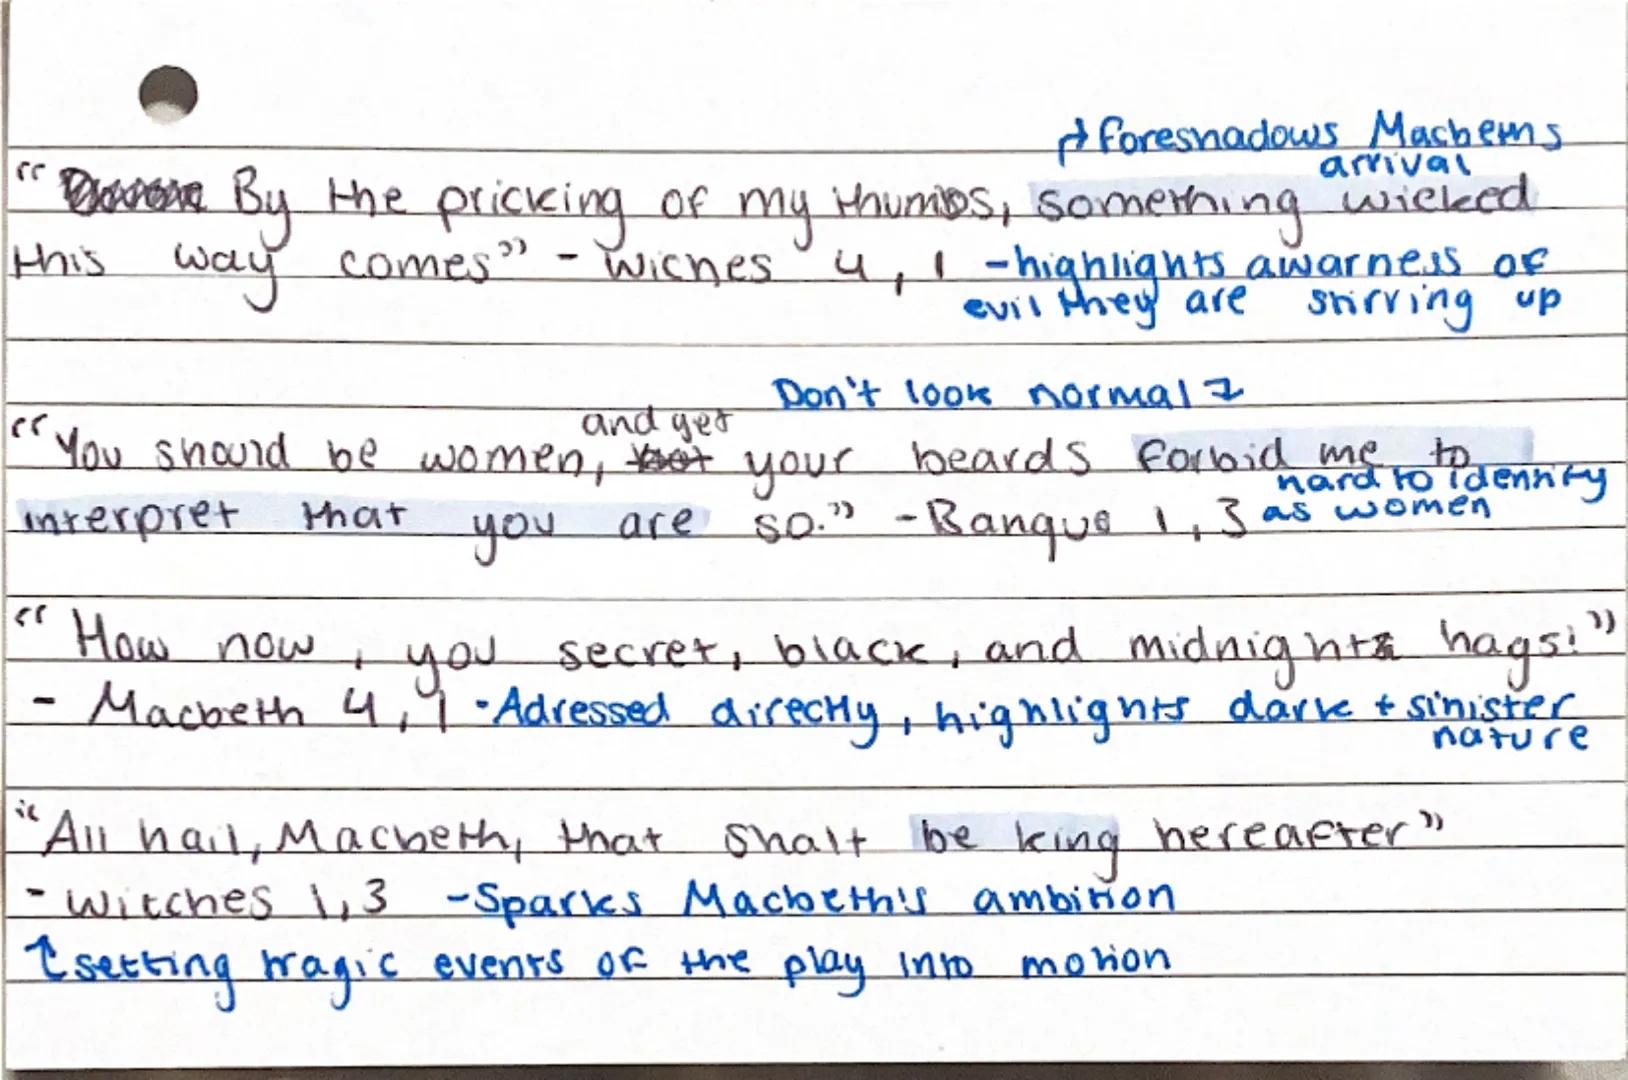 ↱ foreshadows Macbeths
arrival
" By the pricking of my thumbs, something wicked
this way comes" - wiches 4, 1 - highlights awarness of
evil they are stirring up
Don't look normal
and yet
"You should be women, your beards forbid me to
hard to identify
interpret that you are so." - Banquo 1, 3 as women
"How now, you secret, black, and midnight hags!"
- Macbeth 4, 1 - Adressed directly, highlights dark + sinister
nature
"All hail, Macbeth, that shalt be king hereafter"
- witches 1, 3 - Sparks Macbeth's ambition
setting tragic events of the play into motion